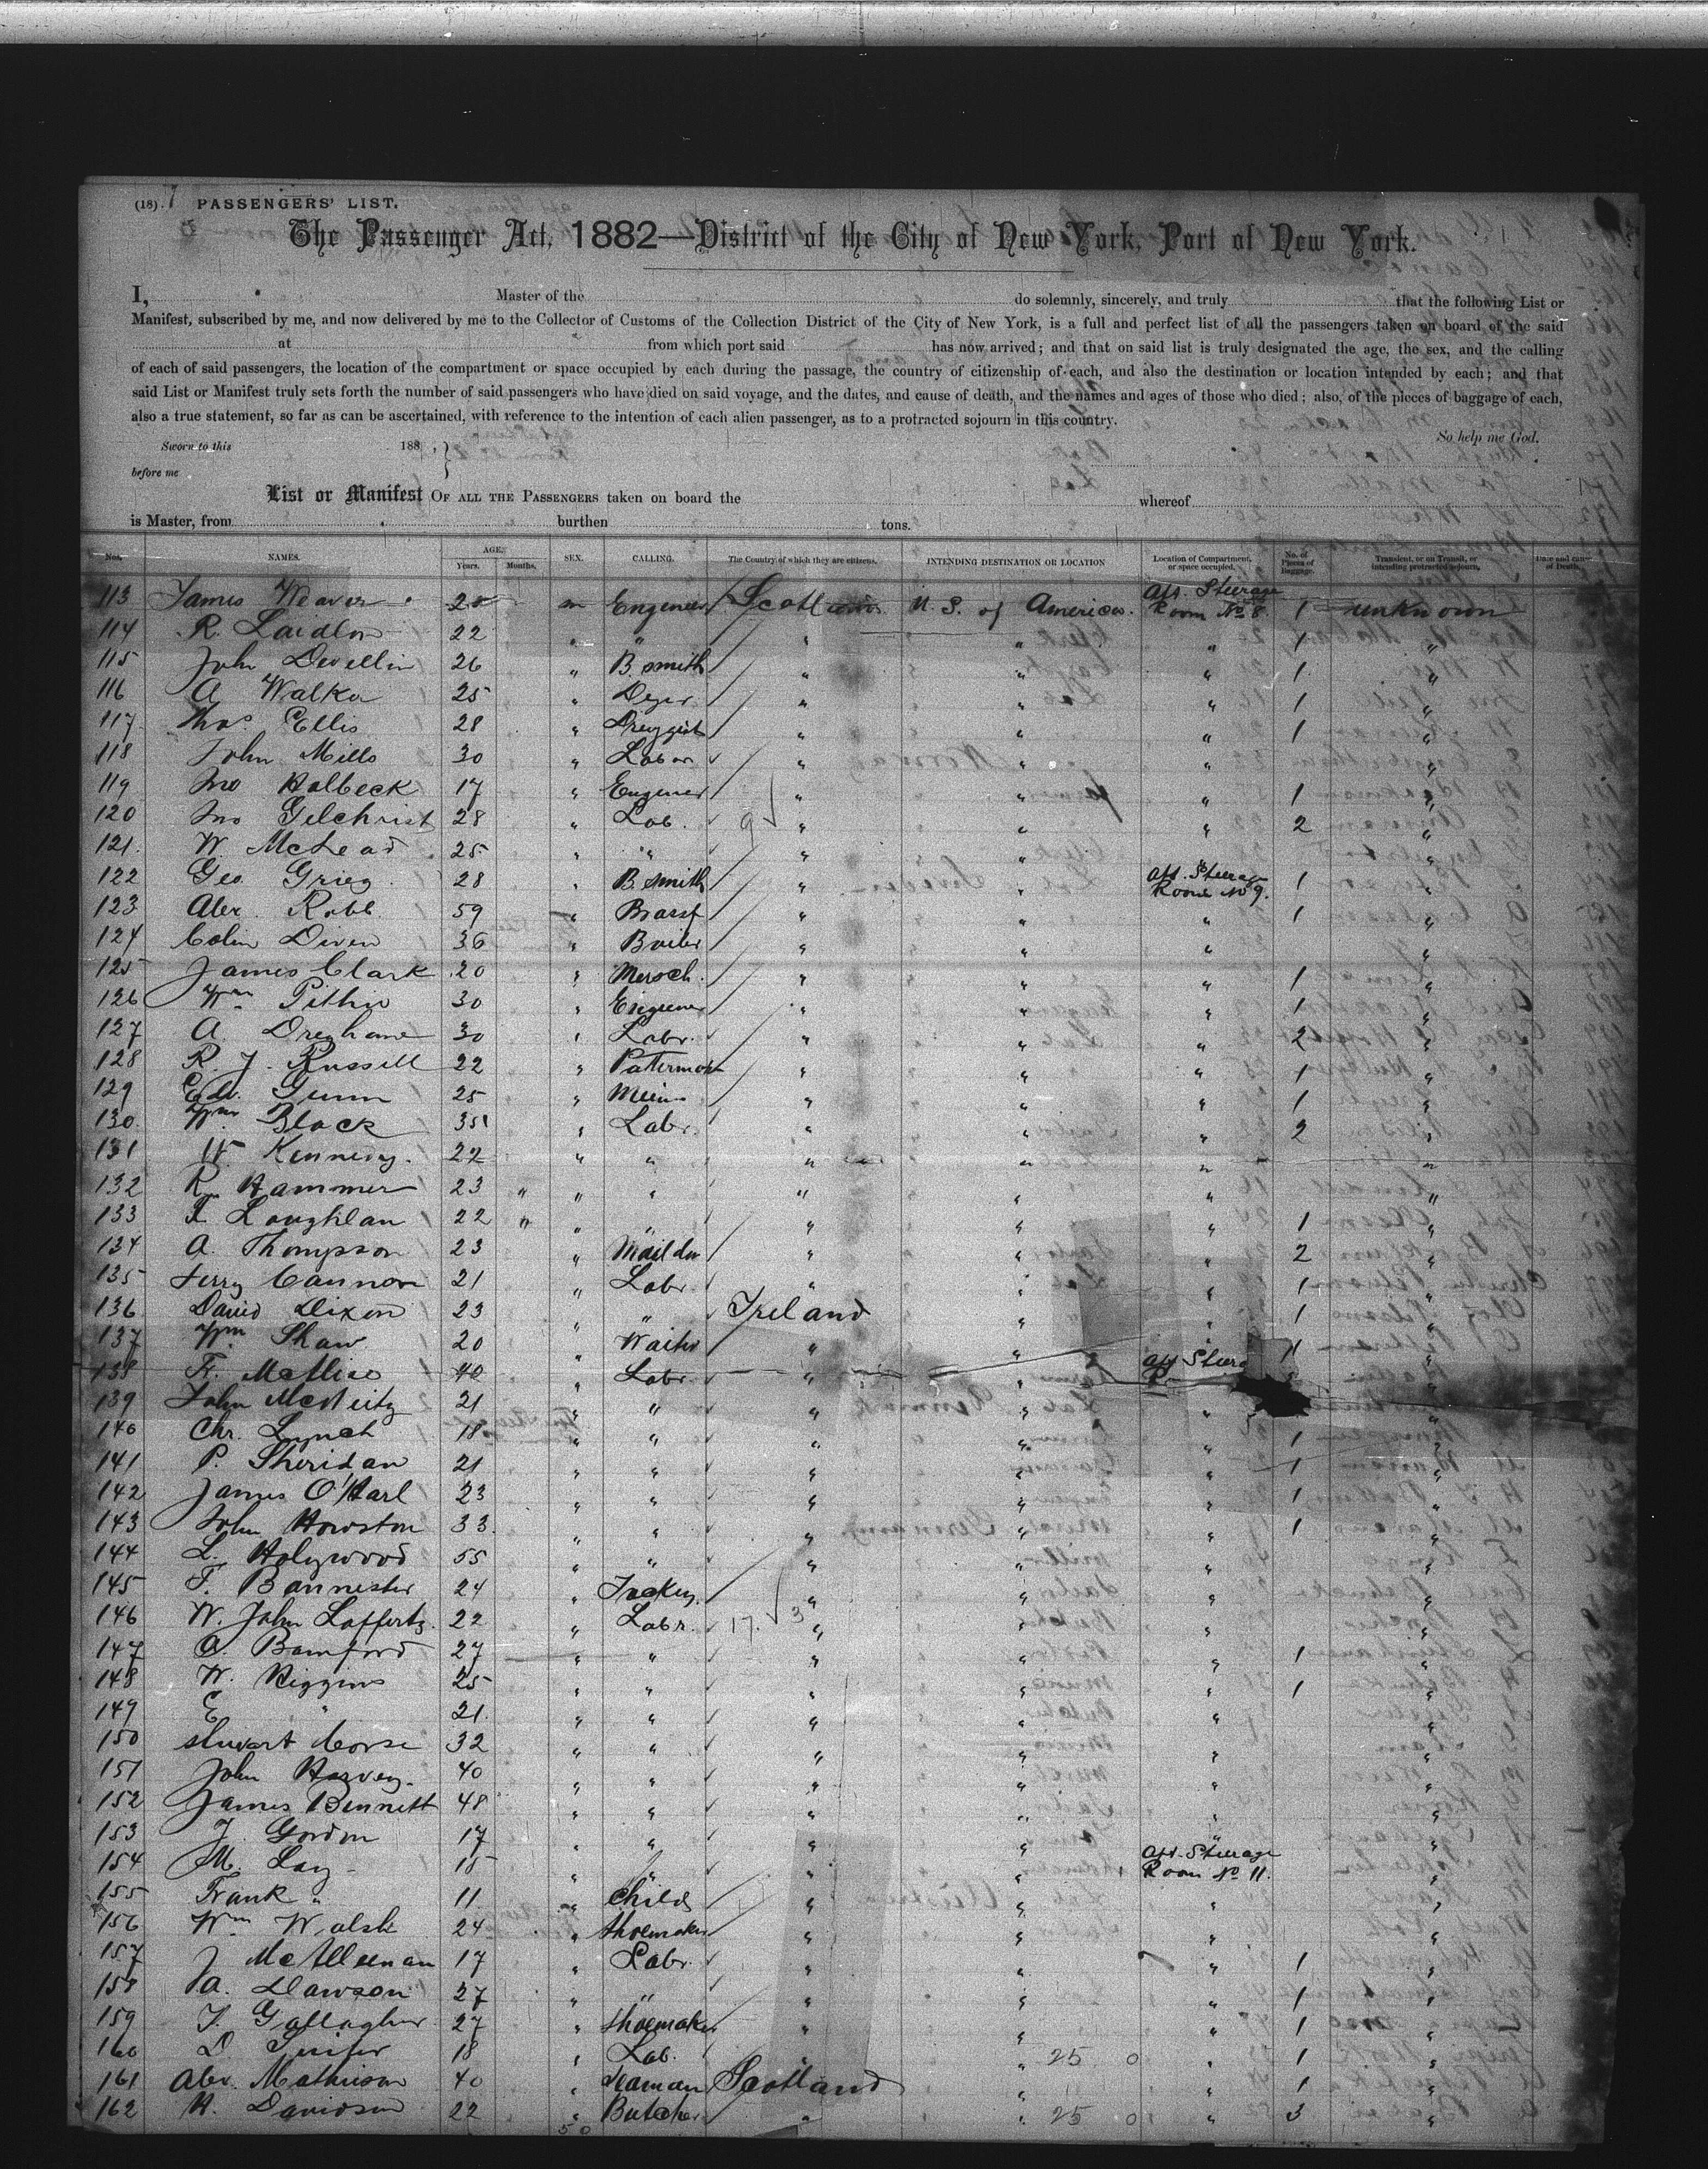 (18). 7 PASSENGERS' LIST.
The Passenger Act, 1882—District of the City of New York, Port of New York.
I, Master of the do solemnly, sincerely, and truly that the following List or
Manifest, subscribed by me, and now delivered by me to the Collector of Customs of the Collection District of the City of New York, is a full and perfect list of all the passengers taken on board of the said
at from which port said has now arrived; and that on said list is truly designated the age, the sex, and the calling
of each of said passengers, the location of the compartment or space occupied by each during the passage, the country of citizenship of each, and also the destination or location intended by each; and that
said List or Manifest truly sets forth the number of said passengers who have died on said voyage, and the dates, and cause of death, and the names and ages of those who died; also, of the pieces of baggage of each,
also a true statement, so far as can be ascertained, with reference to the intention of each alien passenger, as to a protracted sojourn in this country.
So help me God.
Sworn to this 188 , }
before me
List or Manifest OF ALL THE PASSENGERS taken on board the whereof
is Master, from burthen tons.
Nos. NAMES. AGE. Years. Months. SEX. CALLING. The Country of which they are citizens. INTENDING DESTINATION OR LOCATION Location of Compartment, or space occupied. No. of Pieces of Baggage. Transient, or in Transit, or intending protracted sojourn. Date and cause of Death.
113 James Weaver 25 m Engineer Scotland U. S. of America. Aft. Steerage Room No 8. 1 unknown
114 R. Laidlow 22 " " " " " 1 "
115 John Devellin 26 " B. smith " " " 1 "
116 A Walker 25 " Dyer " " " 1 "
117 Thos Ellis 28 " Druggist " " " 1 "
118 John Mills 30 " Labor " " " "
119 Jno Holbeck 17 " Engineer " " " 1 "
120 Jno Gilchrist 28 " Lab. 9 " " " 2 "
121. W. McLead 25 " " " " "
122 Geo Grieg 28 " B. smith " " Aft. Steerage Room No 9. 1 "
123 Alex. Robb 59 " Brassf " " " 1 "
124 Colin Diven 36 " Boiler " " " "
125 James Clark 20 " " " " 1 "
126 Wm 30 " Engineer " " " 1 "
127 A. 30 " Labr. " " " 2 "
128 R. J. Russell 22 " " " " 1 "
129 Edw. Gunn 25 " " " " 1 "
130. Wm Black 35 " Labr. " " " 2 "
131 W. Kennedy. 22 " " " " " "
132 R. Hammer 23 " " " " " " "
133 F. Loughlan 22 " " " " " " 1 "
134 A. Thompson 23 " " " " 2 "
135 Terry Cannon 21 " Labr " " " 1 "
136 David Dixon 23 " " Ireland " " 1 "
137 Wm Shaw 20 " Waiter " " " 1 "
138 F. McAlise 40 " Labr. " " Aft Steer "
139 John McNeitz 21 " " " " " "
140 Chr. Lynch 18 " " " " " 1 "
141 P. Sheridan 21 " " " " " 1 "
142 James O'Harl 23 " " " " " 1 "
143 John Howston 33. " " " " " 1 "
144 L. Holywood 55 " " " " " "
145 F. Bannester 24 " Jockey. " " " "
146 W. John Lafferty. 22 " Labr. 17. 3 " " " "
147 A. Bamford 27 " " " " " 1 "
148 W. Higgins 25 " " " " " 1 "
149 E " 21. " " " " " "
150 Stuart Corse 32 " " " " " "
151 John Harvey. 40 " " " " " "
152 James Bennett 48 " " " " " "
153 J. Gordon 17 " " " " " "
154 M. Lay 18 " " " " Aft. Steerage Room No 11. "
155 Frank " 11. " Child " " " "
156 Wm Walsh 24 " Shoemaker " " " "
157 J McAlleenan 17 " Labr. " " " 1 "
158 A. Dawson 27 " " " " " 1 "
159 T. Gallagher 27 " Shoemaker " " " 1 "
160 D. 18 " Lab. " 25 0 " 1 "
161 Alex. Mathieson 40 " Seaman Scotland " " 1 "
162 H. Davidson 22 " Butcher " " 25 0 " 3 "
50